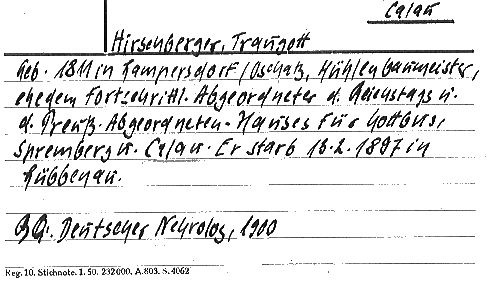 Calau
Hirschberger, Traugott
Geb. 1811 in Rampersdorf/Oschatz, Mühlenbaumeister,
ehedem Fortschrittl. Abgeordneter d. Reichstags u.
d. Preuß. Abgeordneten-Hauses für Cottbus,
Spremberg u. Calau. Er starb 18.2.1897 in
Lübbenau.
BQ. Deutscher Nekrolog, 1900
Reg. 10. Stichnote. 1. 50. 232000. A.803. S. 4062